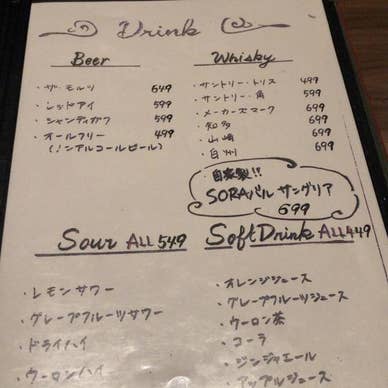 Drink
Beer
・ザ・モルツ 649
・レッドアイ 599
・シャンディガフ 599
・オールフリー 499
(ノンアルコールビール)
Whisky
・サントリー・トリス 499
・サントリー・角 599
・メーカーズマーク 699
・知多 699
・山崎 699
・白州 699
自家製!!
SORAバル サングリア
699
Sour ALL 549
・レモンサワー
・グレープフルーツサワー
・ドライハイ
・ウーロンハイ
Soft Drink ALL449
・オレンジジュース
・グレープフルーツジュース
・ウーロン茶
・コーラ
・ジンジャエール
アップルジュース